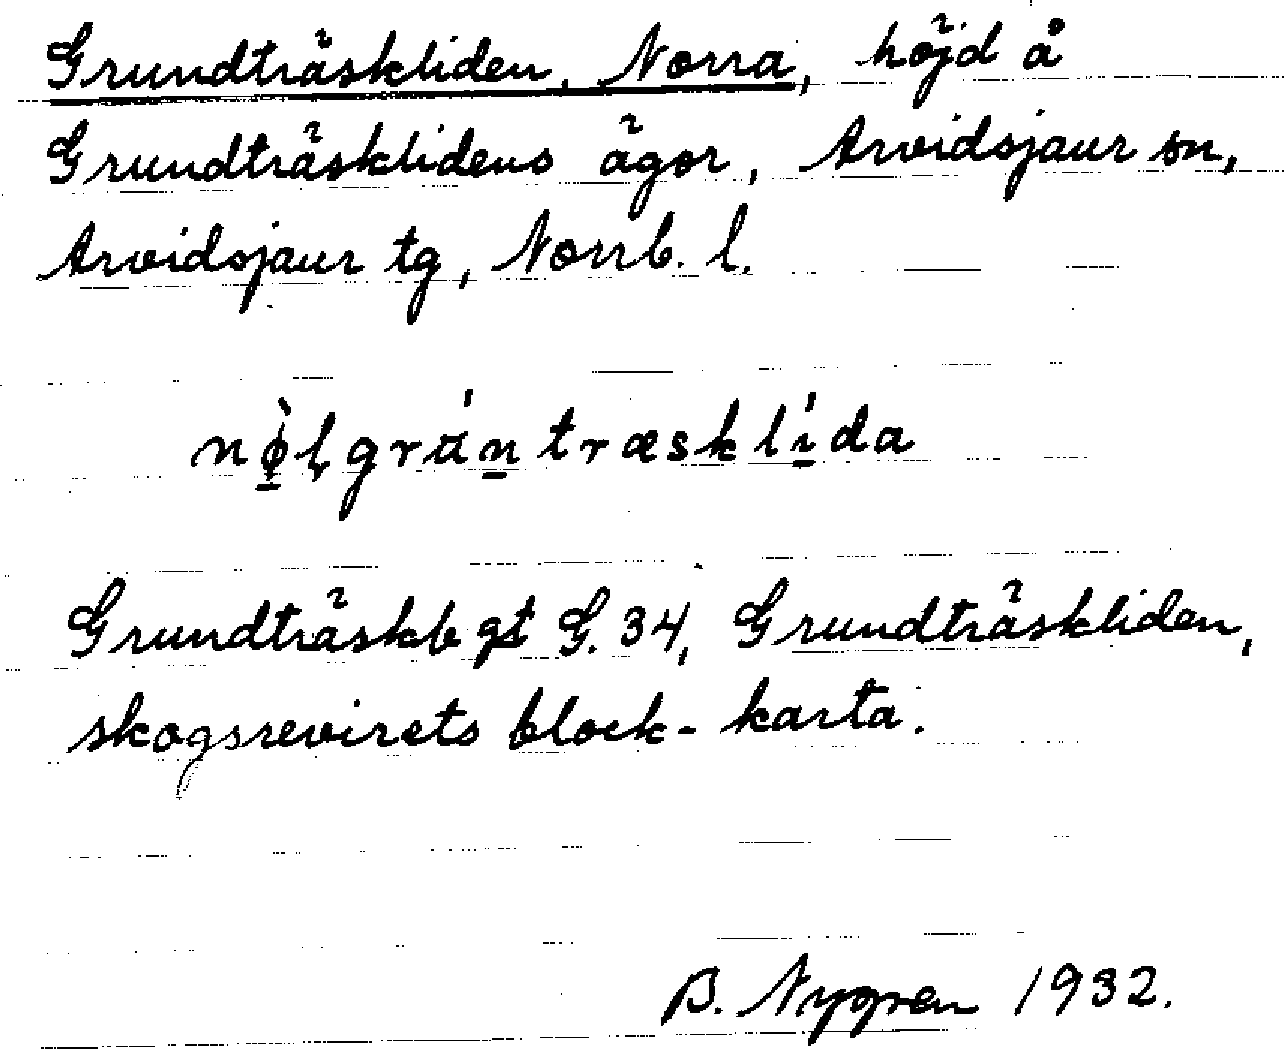 Grundträskliden, Norra, höjd å
Grundträsklidens ägor, Arvidsjaur sn,
Arvidsjaur tg, Norrb. l.
nø̲̀ļgrún̲træsklí̲da
Grundträskb gst G. 34, Grundträskliden,
skogsrevirets block-karta.
B. Nygren 1932.